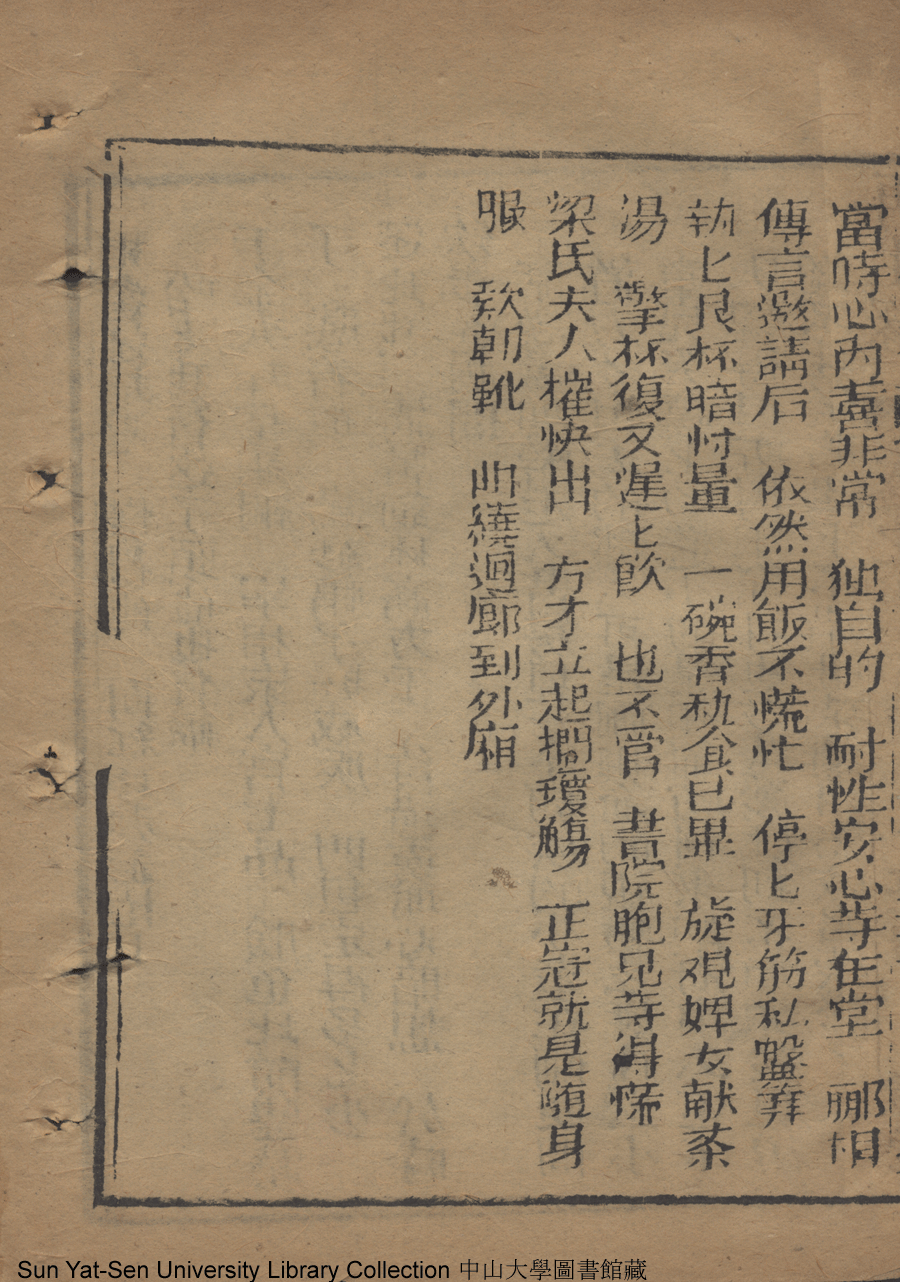 當時心内喜非常　独自的　耐性安心等在堂　郦相
傳言邀請后　依然用飯不慌忙　停匕牙筯私盤筭
執匕艮杯暗忖量　一碗香秔食已畢　旋观婢女献茶
湯　擎杯復又遲匕飲　也不管　書院胞兄等得慌
梁氏夫人催快出　方才立起擱瓊觴　正冠就是随身
服　欵朝靴　曲繞迴廊到外廂
Sun Yat-Sen University Library Collection 中山大學圖書館藏